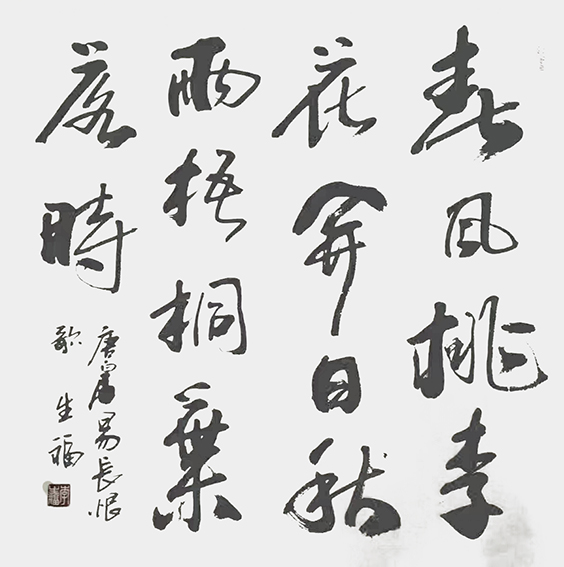 春风桃李
花開日秋
雨梧桐葉
落時
唐白居易長恨
歌 生福